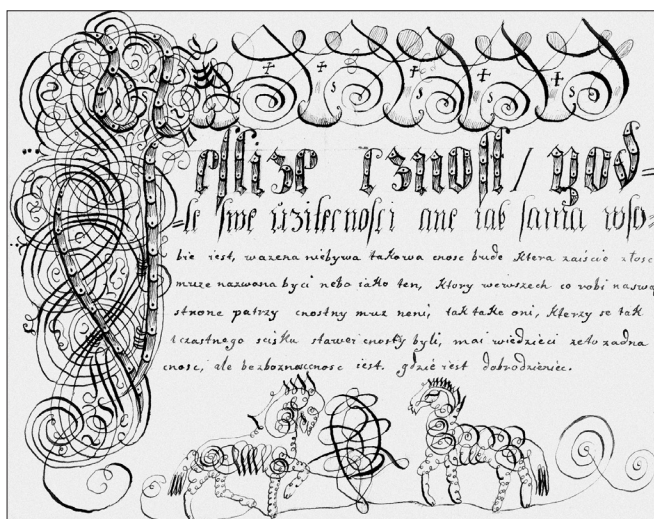 Jestlize cznost / pod=
=le swe úzitecnosti ane iak sama wso=
bie iest, wazena niebywa takowa cnosc bude ktera zaiscie złosc
muze nazwona byci nebo iako ten, ktory we wszech co robi naswą
strone patrzy cnostny muz neni, tak take oni, kterzy se tak
sciśku stawei cnosty byli, mai wiedzieci ze to zadna
cnosc, ale bezboznaccnosc iest. gdzie iest dobrodzieniec.